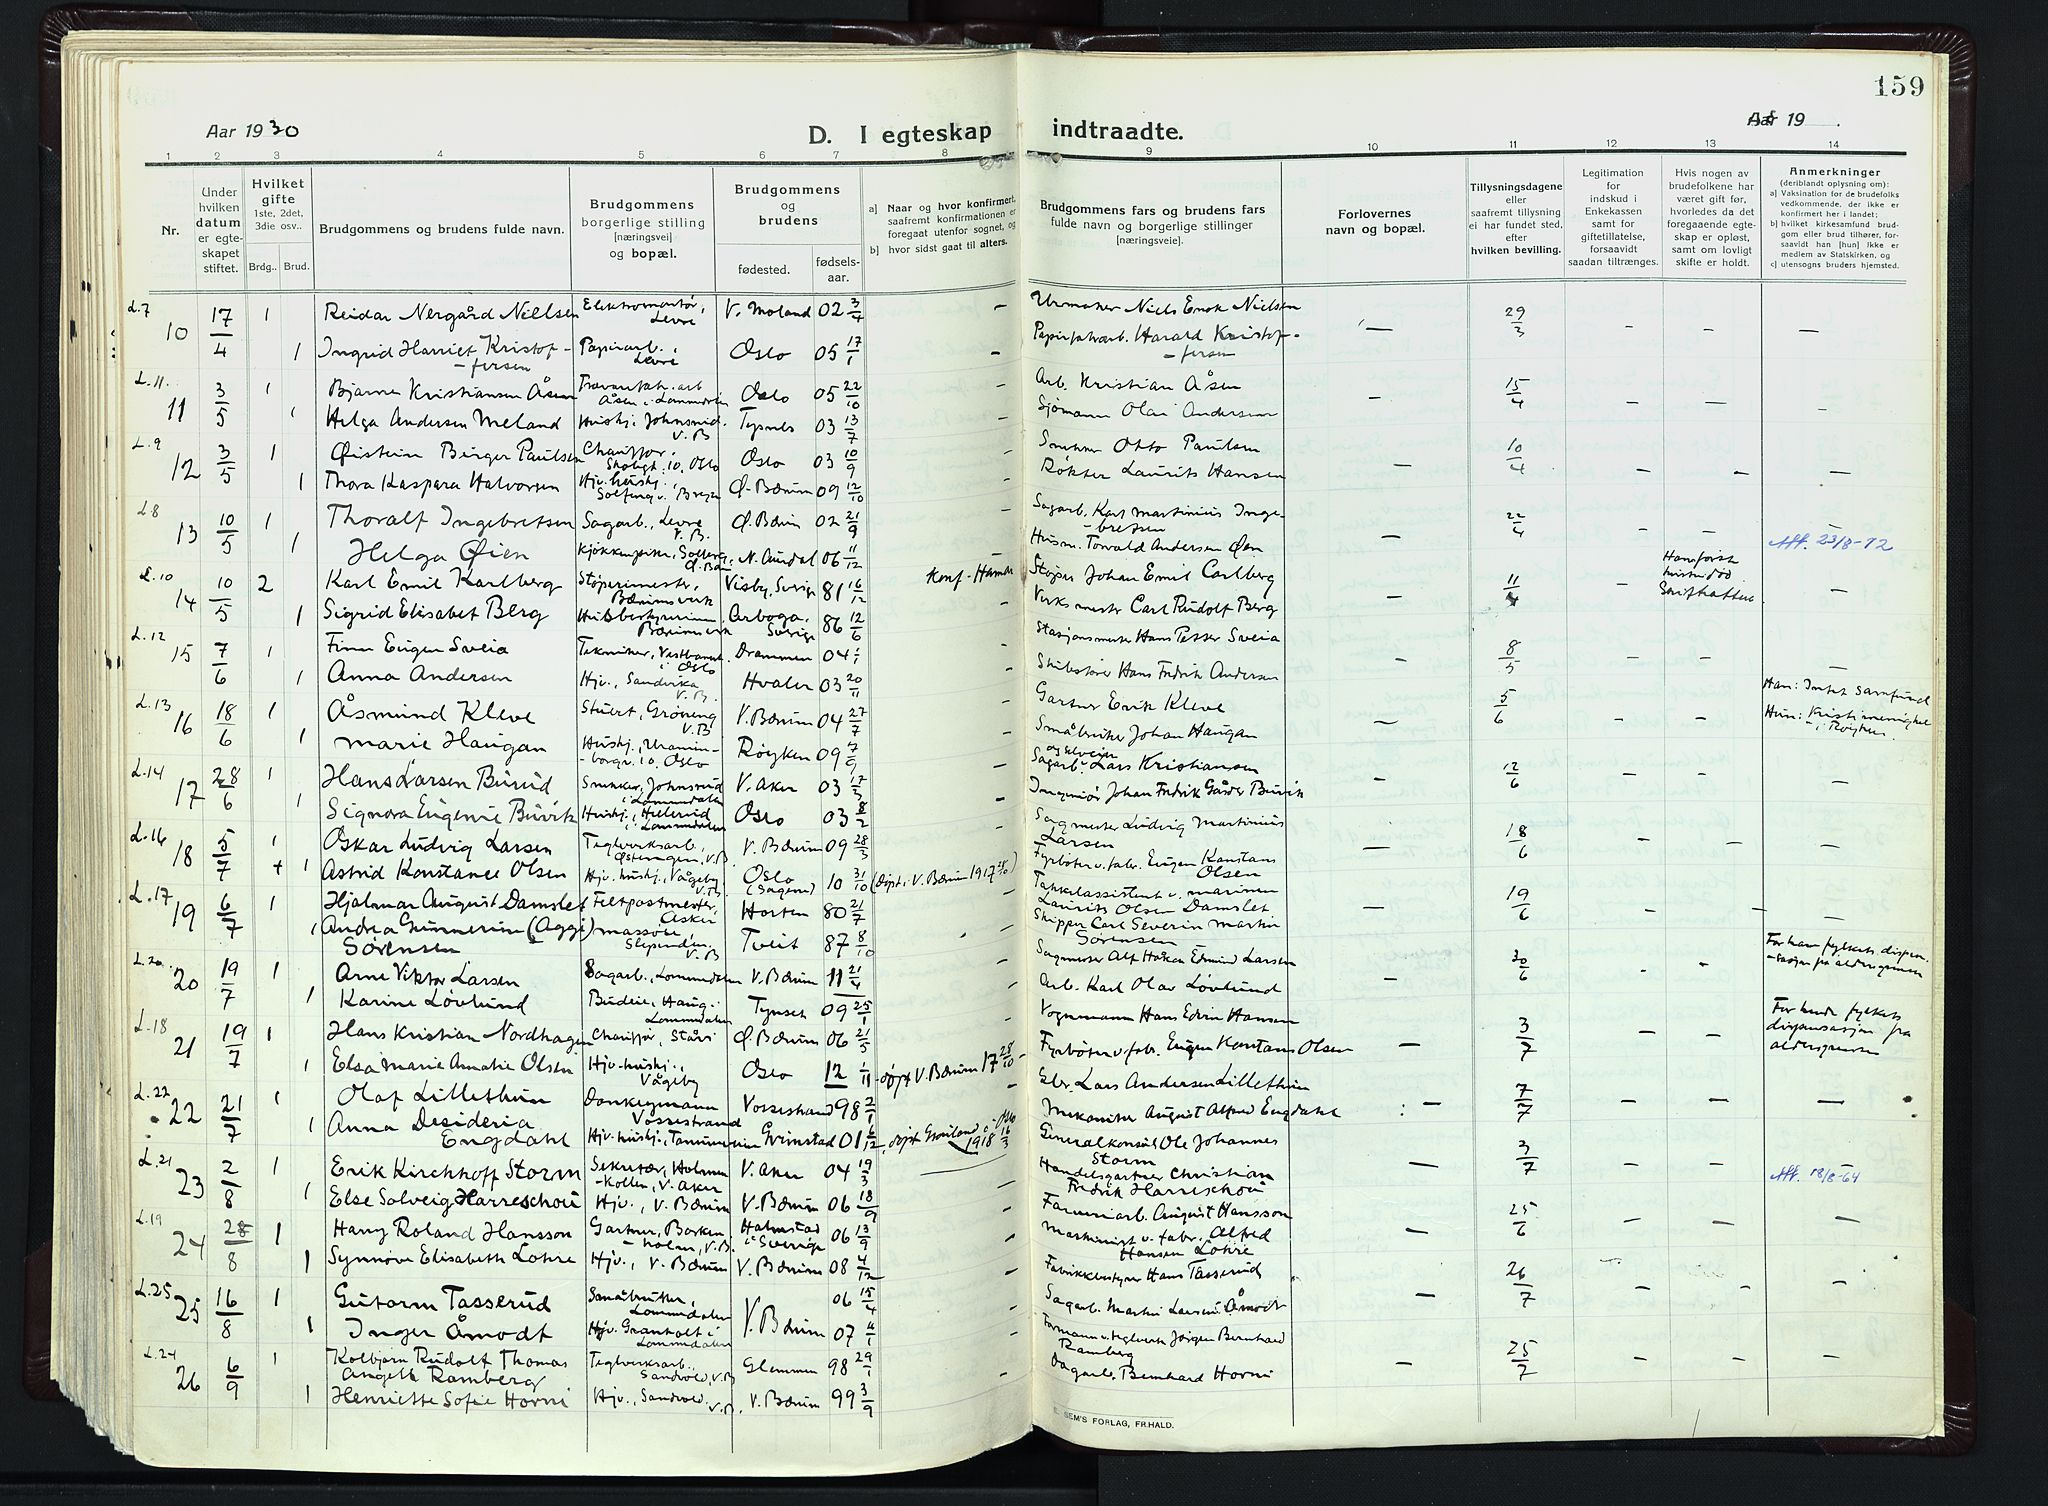 159
Aar 1930
D. I egteskap indtraadte.
Aar 19 .
1 2 3 4 5 6 7 8 9 10 11 12 13 14
Nr.
Under hvilken datum er egteskapet stiftet.
Hvilket gifte 1ste, 2det, 3die osv..
Brdg.. Brud.
Brudgommens og brudens fulde navn.
Brudgommens borgerlige stilling [næringsvei] og bopæl.
Brudgommens og brudens
fødested.
fødsels-aar.
a] Naar og hvor konfirmert, saafremt konfirmationen er foregaat utenfor sognet, og
b] hvor sidst gaat til alters.
Brudgommens fars og brudens fars fulde navn og borgerlige stillinger [næringsveie].
Forlovernes navn og bopæl.
Tillysningsdagene eller saafremt tillysning ei har fundet sted, efter hvilken bevilling.
Legitimation for indskud i Enkekassen samt for giftetillatelse, forsaavidt saadan tiltrænges.
Hvis nogen av brudefolkene har været gift før, hvorledes da det foregaaende egteskap er opløst, samt om lovlig skifte er holdt.
Anmerkninger
(deriblandt oplysning om):
a) Vaksination for de brudefolks vedkommende, der ikke er konfirmert her i landet;
b) hvilket kirkesamfund brudgom eller brud tilhører, forsaavidt han [hun] ikke er medlem av Statskirken, og
c) utensogns bruders hjemsted.
L.7 10 17/4 1 Reidar Nergård Nielsen Elektromontør, Levre V. Moland 02 3/4 – Urmaker Niels Enok Nielsen — 29/3 – – —
1 Ingrid Harriet Kristoffersen Papirarb., Levre Oslo 05 17/1 – Papirfabrarb. Harald Kristoffersen
L.11 11 3/5 1 Bjarne Kristiansen Åsen Åsen i Lommedalen Oslo 05 22/10 – Arb. Kristian Åsen – 15/4 – – –
1 Helga Andersen Meland Hushj. Johnsrud, V.B Tysnes 03 13/7 – Sjømann Olai Andersen
L.9 12 3/5 1 Øistein Birger Paulsen Chauffør, Oslo Oslo 03 10/9 – Smeden Otto Paulsen – 10/4 – – –
1 Thora Kaspara Halvorsen Hjv. hushj., Ø. Bærum 09 12/10 – Røkter Laurits Hansen
L.8 13 10/5 1 Thoralf Ingebretsen Sagarb., Levre V.B. Ø. Bærum 02 21/9 – Sagarb. Karl Martinius Ingebretsen – 22/4 – – –
1 Helga Øien Solberg, Ø. Bær N. Aurdal 06 11/12 – Husm. Torvald Andersen Øien Att. 23/8-72
L.10 14 10/5 2 Karl Emil Karlberg Støperimester, Bærumsverk Visby, Sverige 81 16/12 Konf. Hamar Støper Johan Emil Carlberg – 11/4 – –
1 Sigrid Elisabet Berg Husbestyrerinne Bærumsverk Arboga, Sverige 86 12/6 – Verksmester Carl Rudolf Berg
L.12 15 7/6 1 Finn Eugen Sveia Tekniker, i Oslo Drammen 04 1/1 – Stasjonsmester Hans Petter Sveia – 8/5 – – –
1 Anna Andersen Hjv., Sandvika V.B. Hvaler 03 20/11 – Hans Fredrik Andersen
L.13 16 18/6 1 Åsmund Kleve Stuert, Grøneng V.B V. Bærum 04 27/7 – Gartner Erik Kleve – 5/6 – – Han: Intet samfund
1 Marie Haugan Hushj., Uranienborgv. 10, Oslo Røyken 09 7/9 – Småbruker Johan Haugan Hun: Kristi menighet i Røyken.
L.14 17 28/6 1 Hans Larsen Burud Snekker, Johnsrud i Lommedalen V. Aker 03 17/3 – Sagarb. Lars Kristiansen – 12/6 – – –
1 Signora Eugenie Buvik Hushj., i Lommedalen Oslo 03 8/2 – Ingeniør Johan Fredrik Buvik
L.16 18 5/7 1 Oskar Ludvig Larsen Teglverksarb., V.B. V. Bærum 09 28/3 – Sagmester Ludvig Martinius Larsen – 18/6 – – –
+ 1 Astrid Konstance Olsen Hjv. hushj., Vågeby V.B. Oslo (Sagene) 10 31/10 (døpt i V. Bærum 1917 28/10) Fyrbøter v. fabr. Eugen Konstans Olsen
L.17 19 6/7 1 Hjalmar August Damslet Feltpostmester, Asker Horten 80 21/7 – Laurits Olsen Damslet – 19/6 – – –
1 Andrea Gunnerine (Aggi) Sørensen massøse, Slependen, V.B Tveit 87 8/10 – Skipper Carl Severin Martin Sørensen
L.20 20 19/7 1 Arne Viktor Larsen Sagarb., Lommedalen V. Bærum 11 21/4 – Sagmester Alf Håkon Edmund Larsen – 30/6 – – For ham fylkets dispensasjon fra aldersgrensen
1 Karine Løvlund Budeie, Haug Lommedalen Tynset 09 25/1 – Arb. Karl Olav Løvlund
L.18 21 19/7 1 Hans Kristian Nordhagen Chauffør, Stårs Ø. Bærum 06 21/5 – Vognmann Hans Edvin Hansen – 3/7 – – For hende fylkets dispensasjon fra aldersgrensen
1 Elsa Marie Amalie Olsen Hjv. hushj., Vågeby Oslo 12 1/11 døpt V. Bærum 17 28/10 – Fyrbøter v. fabr. Eugen Konstans Olsen
L.22 22 21/7 1 Olaf Lillethun Donkeymann Vossestrand Vossestrand 98 2/1 – Gbr. Lars Andersen Lillethun – 7/7 – – –
1 Anna Desideria Engdahl Hjv. hushj., Grimstad 01 6/12 døpt Grønland i Oslo 1918 16/3 Mekaniker August Alfred Engdahl
L.21 23 2/8 1 Erik Kirchhoff Storm Sekretær, Holmenkollen, V. Aker V. Aker 04 19/3 – Generalkonsul Ole Johannes Storm – 3/7 – – –
1 Else Solveig Harreschou Hjv., V. Bærum V. Bærum 06 18/9 – Handelsgartner Christian Fredrik Harreschou Att. 18/8-64
L.19 24 28/8 1 Harry Roland Hansson Gartner, Borkenholm, V.B. Halmstad i Sverige 06 13/9 – Farveriarb. August Hansson – 25/6 – – –
1 Synnøve Elisabeth Lohre Hjv., V. Bærum V. Bærum 08 4/12 – Maskinist v. fabr. Alfred Hansen Lohre
L.25 25 16/8 1 Gutorm Tasserud Småbruker, Lommedalen V. Bærum 06 15/4 – Fabrikkbestyrer Hans Tasserud – 26/7 – – –
1 Inger Åmodt Hjv. Granholt i Lommedalen 07 11/1 – Sagarb. Martin Larsen Åmodt
L.24 26 6/9 1 Kolbjørn Rudolf Thomas Angell Ramberg Teglverksarb., Sandvold, V.B Glemmen 98 29/1 – Formann v. teglverk Jørgen Bernhard Ramberg – 25/7 – – –
1 Henriette Sofie Horni Hjv., Sandvold, V.B. V. Bærum 99 3/9 Sagarb. Bernhard Horni
E. SEM'S FORLAG, FR.HALD.